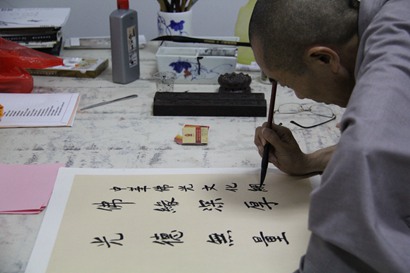 中華佛光文化網
佛緣深厚
光德無量